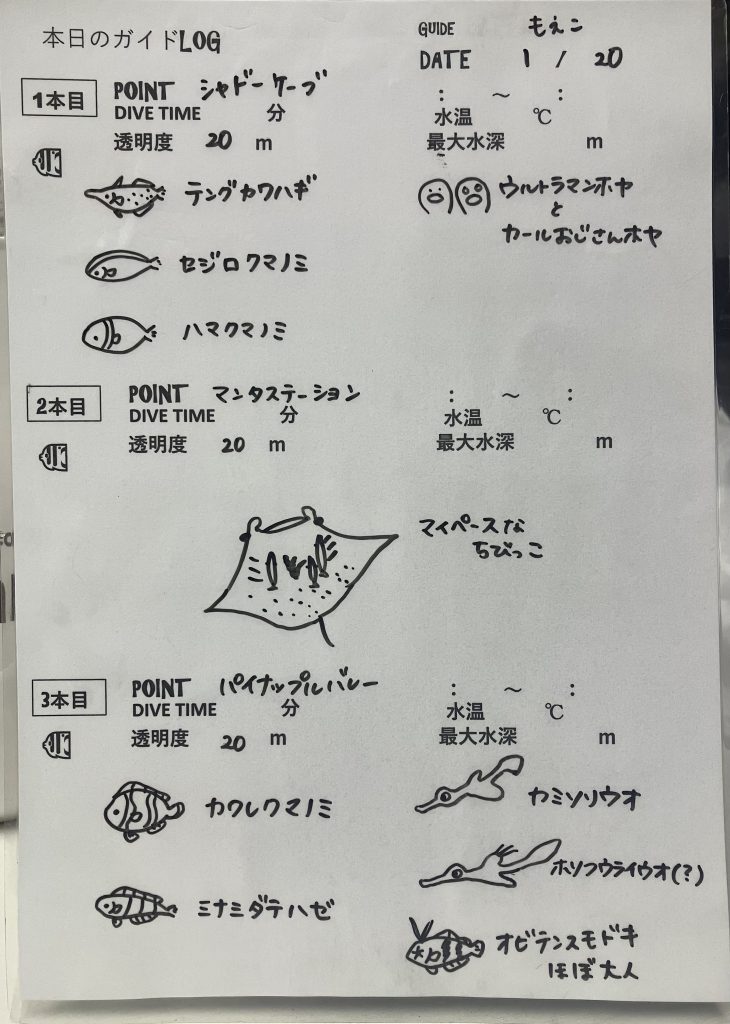 本日のガイドLOG
GUIDE もえこ
DATE 1 / 20
1本目
POINT シャドーケーブ
: ～ :
DIVE TIME 分
水温 ℃
透明度 20 m
最大水深 m
テングカワハギ
セジロクマノミ
ハマクマノミ
ウルトラマンホヤ
と
カールおじさんホヤ
2本目
POINT マンタステーション
: ～ :
DIVE TIME 分
水温 ℃
透明度 20 m
最大水深 m
マイペースな
ちびっこ
3本目
POINT パイナップルバレー
: ～ :
DIVE TIME 分
水温 ℃
透明度 20 m
最大水深 m
カクレクマノミ
ミナミダテハゼ
カミソリウオ
ホソフウライウオ(?)
オビテンスモドキ
ほぼ大人